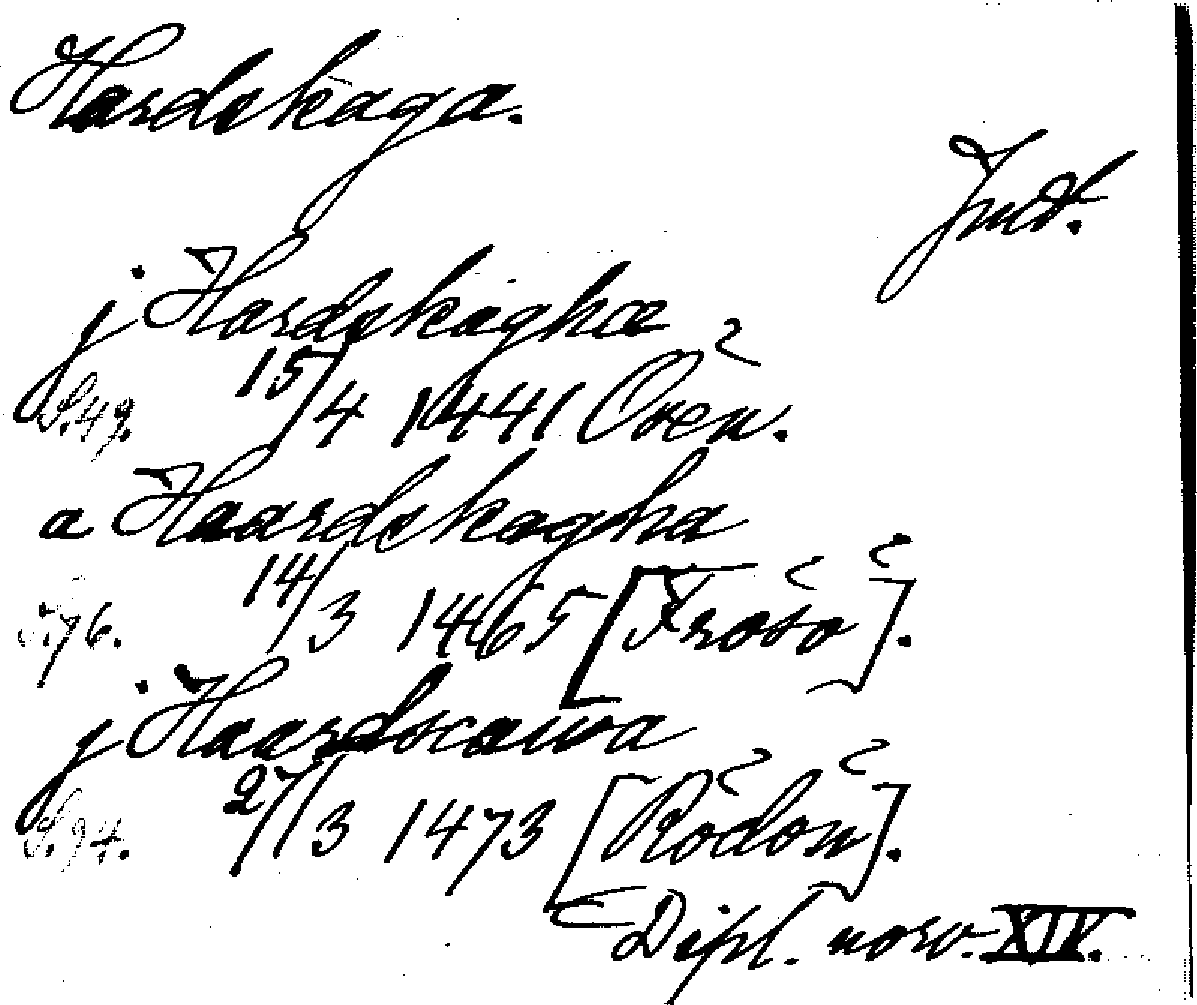 Hardskaga.
Jmtl.
j Hardskaghæ
S. 49. 15/4 1441 Oven.
a Haardskagha
S. 76. 14/3 1465 [Frösö].
j Haardscawa
S. 94. 27/3 1473 [Rödön].
Dipl. norv. XIV.